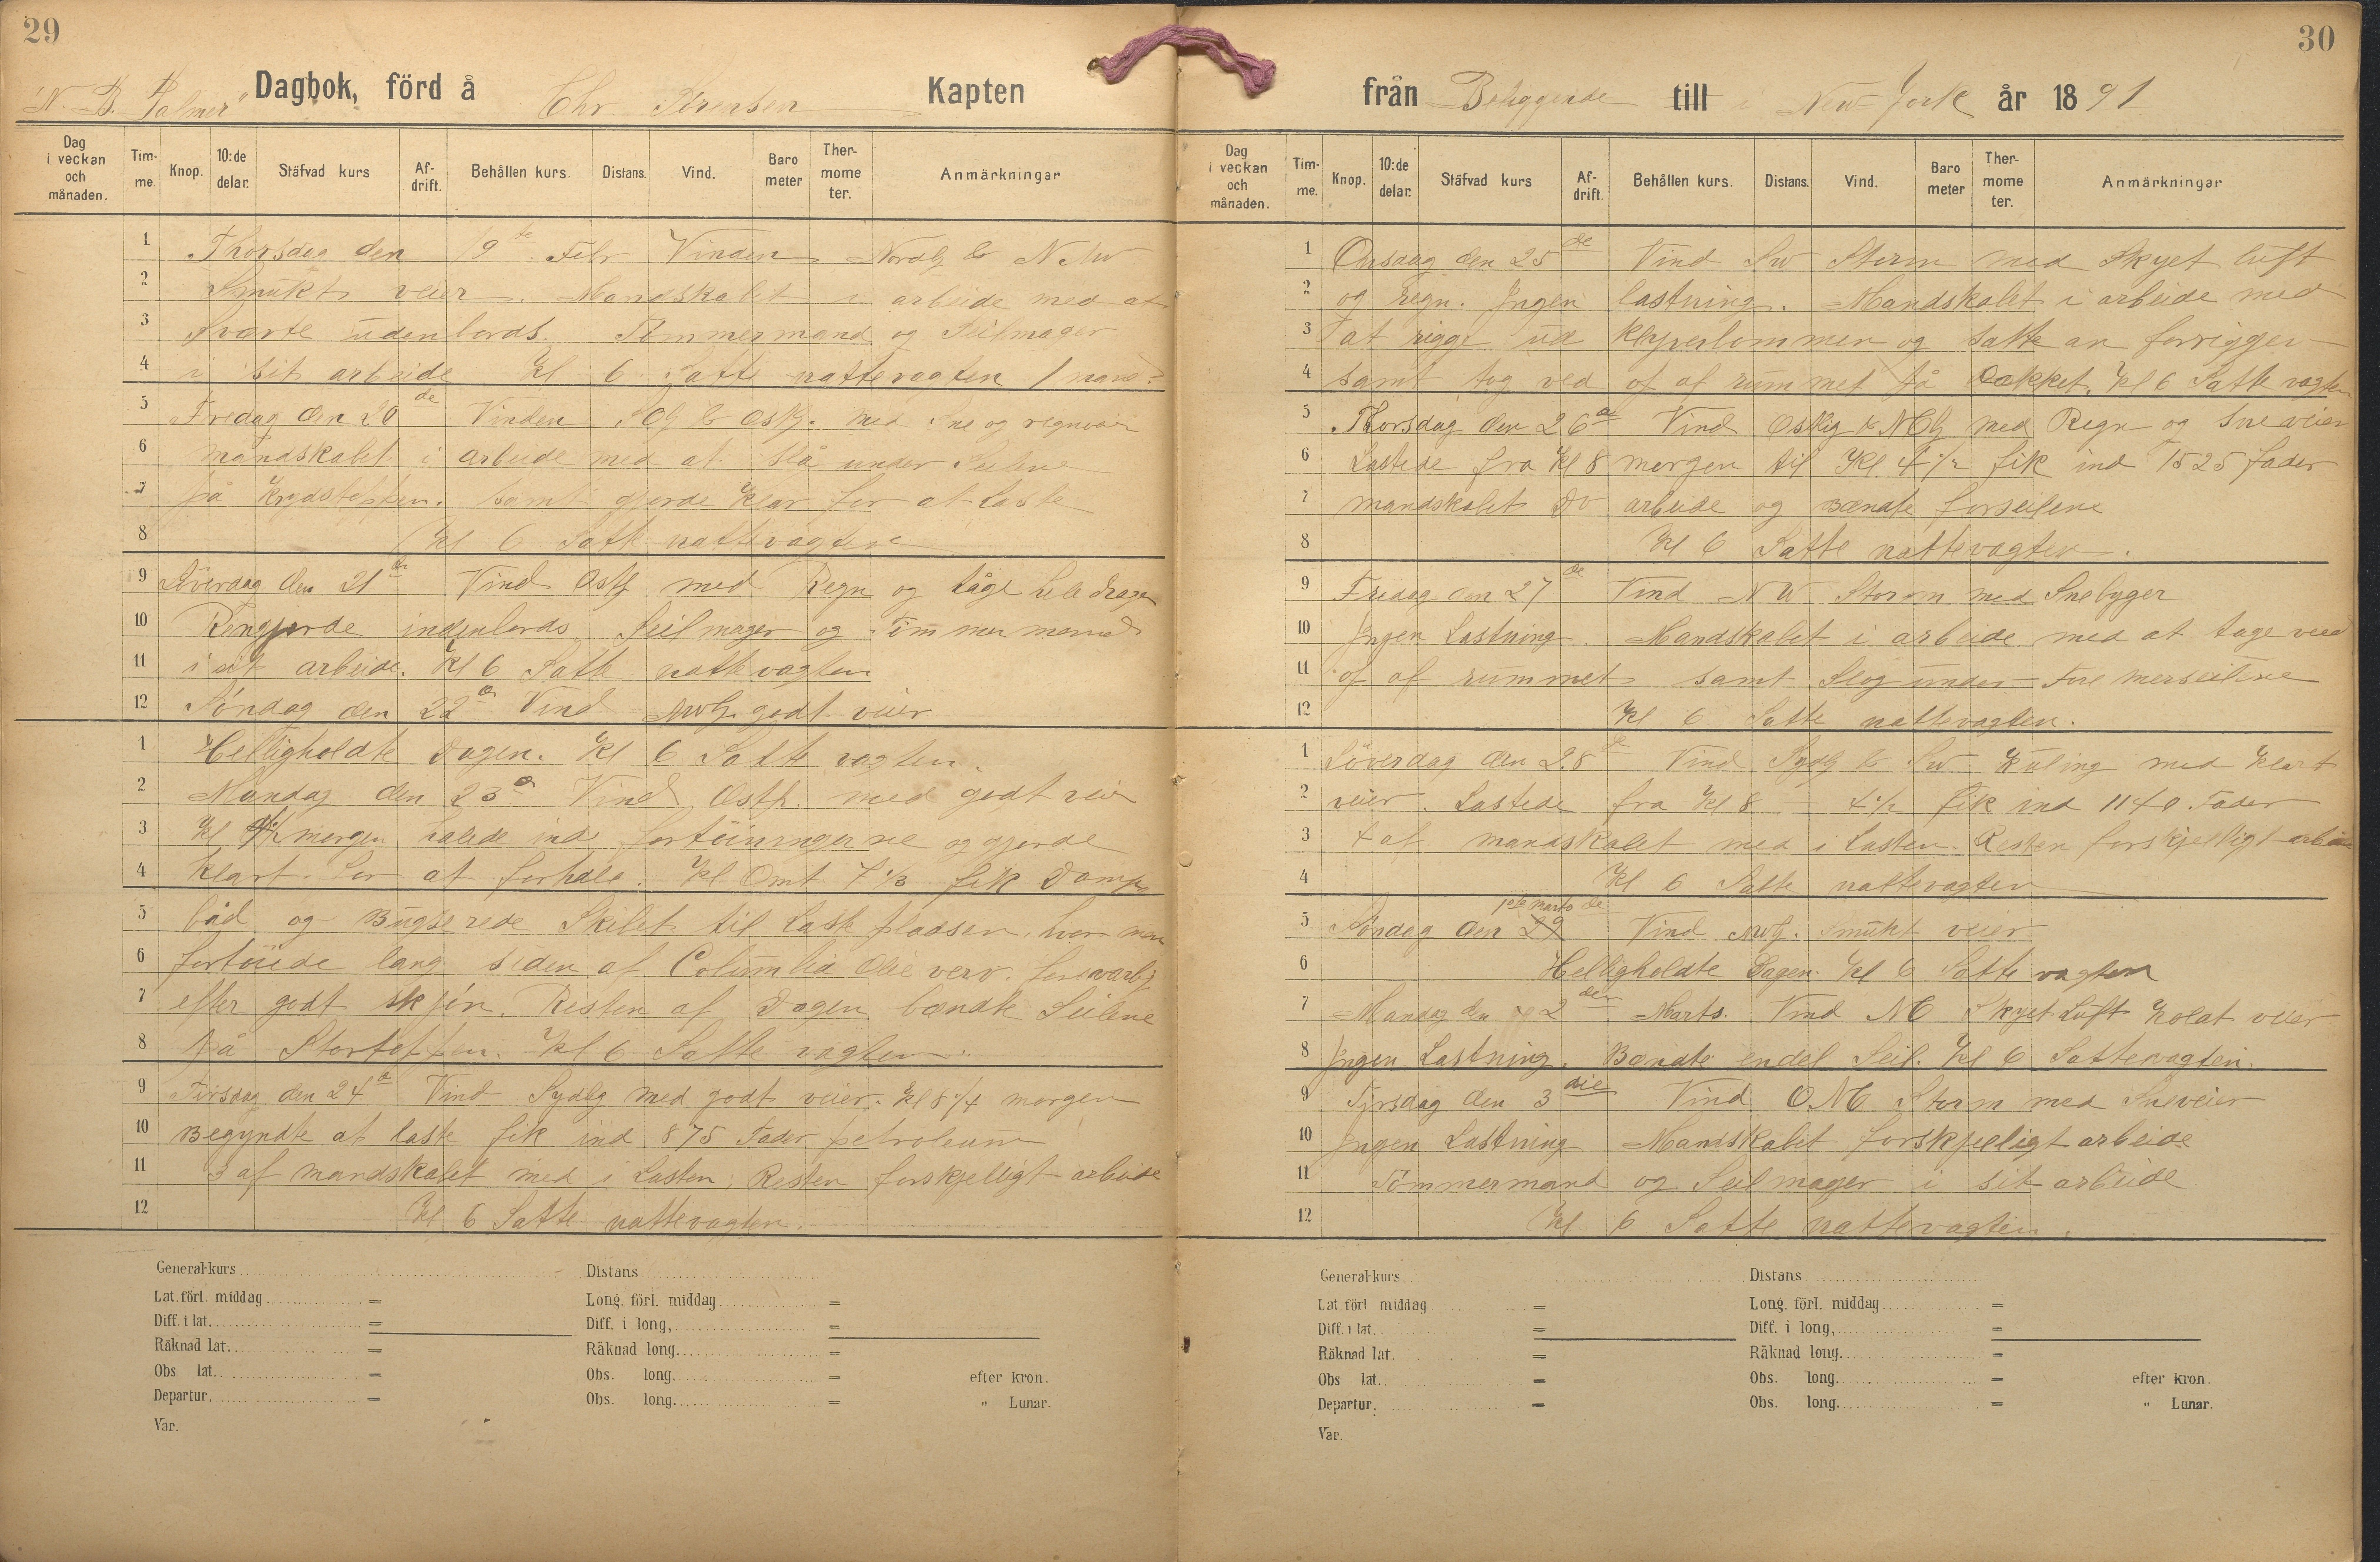 29
"N. B. Palmer" Dagbok, förd å Chr Kapten
Dag i veckan och månaden. Timme. Knop. 10:de delar. Stäfvad kurs Afdrift. Behållen kurs. Distans. Vind. Barometer Thermometer. Anmärkningar
1 Thorsdag den 19de Febr Vinden Nordlg & NNW
2 Smukt veier. Mandskabet i arbeide med at
3 Sværte udenbords. Tömmermand og Seilmager
4 i sit arbeide Kl 6 Satte nattevagten 1 mand
5 Fredag den 20de Vinden & Østlg. med Sne og regnveir
6 mandskabet i arbeide med at slå under Seilene
7 på Krydstoppen. samt gjorde Klar for at Laste
8 Kl 6 Satte nattevagten
9 Löverdag den 21de Vind Østlg med Regn og tåge hele dagen
10 Rengjorde indenbords Seilmager og Tömmermand
11 i sit arbeide. Kl 6 Satte nattevagten
12 Söndag den 22de Vind NWlg. godt veier
1 Helligholdte Dagen. Kl 6 Satte vagten.
2 Mandag den 23de Vind Østlg. med godt veir
3 Kl morgen halede ind fortöiningerne og gjorde
4 Klart for at forhale. Kl Omt 7 1/2 fik Damp
5 båd og Bugserede Skibet til Laste pladsen, hvor man
6 fortöiede lang siden af Columbia Olie verv. forsvarlg
7 efter godt skjön. Resten af Dagen bændte Seilene
8 på Stortoppen. Kl 6 Satte vagten.
9 Tirsdag den 24de Vind Sydlg med godt veier. Kl 8 1/4 morgen
10 Begyndte at laste fik ind 875 Fader petroleum
11 3 af mandskabet med i Lasten, Resten forskjelligt arbeide
12 Kl 6 Satte nattevagten.
General-kurs Distans
Lat. förl. middag = Long. förl. middag =
Diff. i lat. = Diff. i long, =
Räknad lat. = Räknad long. =
Obs lat. = Obs. long. = efter kron.
Departur. = Obs. long. = " Lunar.
Var.
30
från Beliggende till i New-York år 1891
Dag i veckan och månaden. Timme. Knop. 10:de delar. Stäfvad kurs Afdrift. Behållen kurs. Distans. Vind. Barometer Thermometer. Anmärkningar
1 Onsdag den 25de Vind SW Storm med Skyet luft
2 og regn. Ingen lastning. Mandskabet i arbeide med
3 at rigge ud klyverbommen og satte an forrigger
4 samt tog ved op af rummet på Dækket. Kl 6 Satte vagten
5 Thorsdag den 26de Vind Østlig & NOlg med Regn og Sne veier
6 Lastede fra Kl 8 morgen til Kl 4 1/2 fik ind 1525 fader
7 mandskabet Do arbeide og Bændte forseilene
8 Kl 6 Satte nattevagten.
9 Fredag den 27de Vind NW Storm med Snebyger
10 Ingen Lastning. Mandskabet i arbeide med at tage ved
11 op af rummet samt Slog under Fore merseilene
12 Kl 6 Satte nattevagten.
1 Löverdag den 28de Vind Sydlg & SW Kuling med Klart
2 veier. Lastede fra Kl 8 - 4 1/2 fik ind 1140 Fader
3 4 af mandskabet med i Lasten. Resten forskjelligt arbeide
4 Kl 6 Satte nattevagten
5 Söndag den 29 1ste Marts de Vind NWlg. Smukt veier
6 Helligholdte Dagen. Kl 6 Satte vagten
7 Mandag den 2den Marts. Vind NO Skyet Luft Kolat veier
8 Ingen Lastning. Bændte endel Seil. Kl 6 Sattevagten.
9 Tyrsdag den 3die Vind ONO Storm med Sneveier
10 Ingen Lastning Mandskabet forskjeligt arbeide
11 Tömmermand og Seilmager i sit arbeide
12 Kl 6 Satte nattevagten.
General-kurs Distans
Lat. förl middag = Long. förl. middag =
Diff. i lat. = Diff. i long, =
Räknad lat. = Räknad long. =
Obs lat. = Obs. long. = efter kron.
Departur. = Obs. long. = " Lunar.
Var.